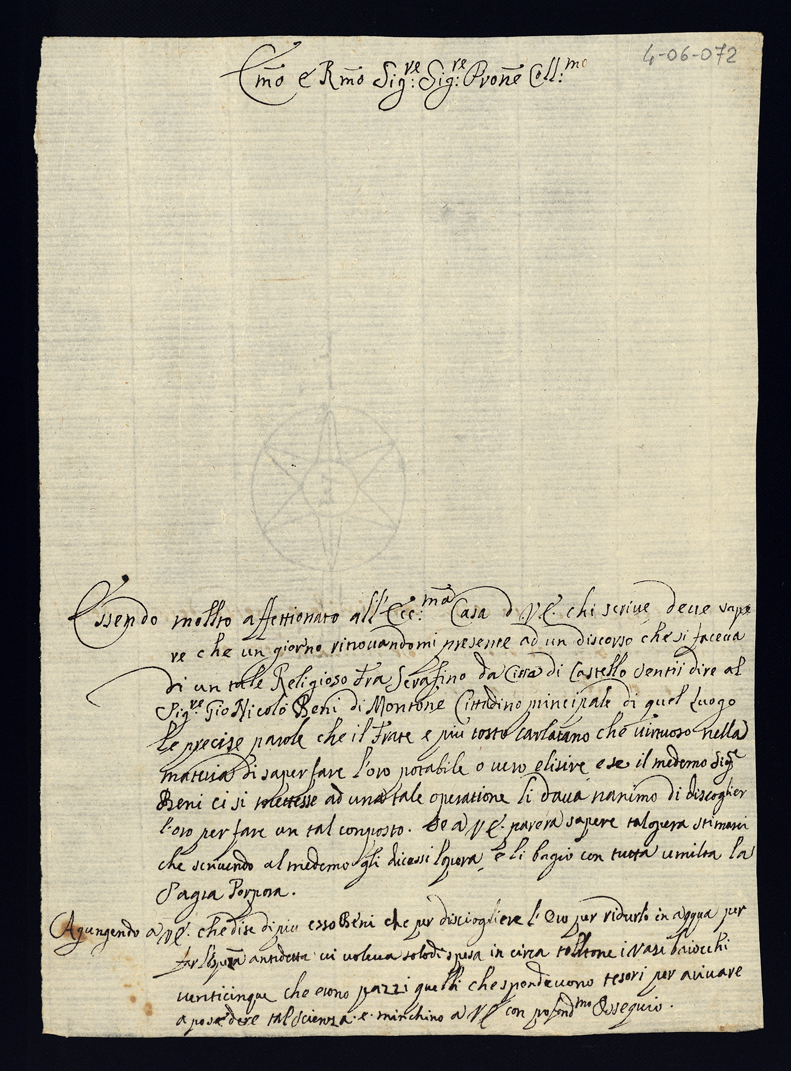 4-06-072
Em̃o e Rm̃o Sig:re Sig:re Prone Coll:mo
Essendo molto affettionato all'Ecc:ma Casa d V.E. chi scrive deve sape
re che un giorno ritrovandomi presente ad un discorso che si faceva
di un tale Religioso Fra Serafino da Città di Castello sentii dire al
Sigre Gio Nicolò Beni di Montone Cittadino principale di quel luogo
le precise parole che il frate e più tosto carlatano che virtuoso nella
materia di saper fare l'oro potabile o vero elisire e se il medemo Sigre
Beni ci si mettesse ad una tale operatione li dava n'animo di discoglier
l'oro per fare un tal conposto. Se a V.E. parerà sapere tal opera stimarei
che scrivendo al medemo gli dicessi l'opera e li bagio con tutta umiltà la
Sagra Porpora.
Agiungendo a V.E. che disse di più esso Beni che per disciogliere l'Oro per ridurlo in acqua per
far l'opera antidetta vi voleva solo di spesa in circa i vasi baiocchi
venticinque che erono pazzi quelli che spendevono tesori per arivare
a posedere tal scienza. e. m'inchino a V.E. con profondmo Ossequio.